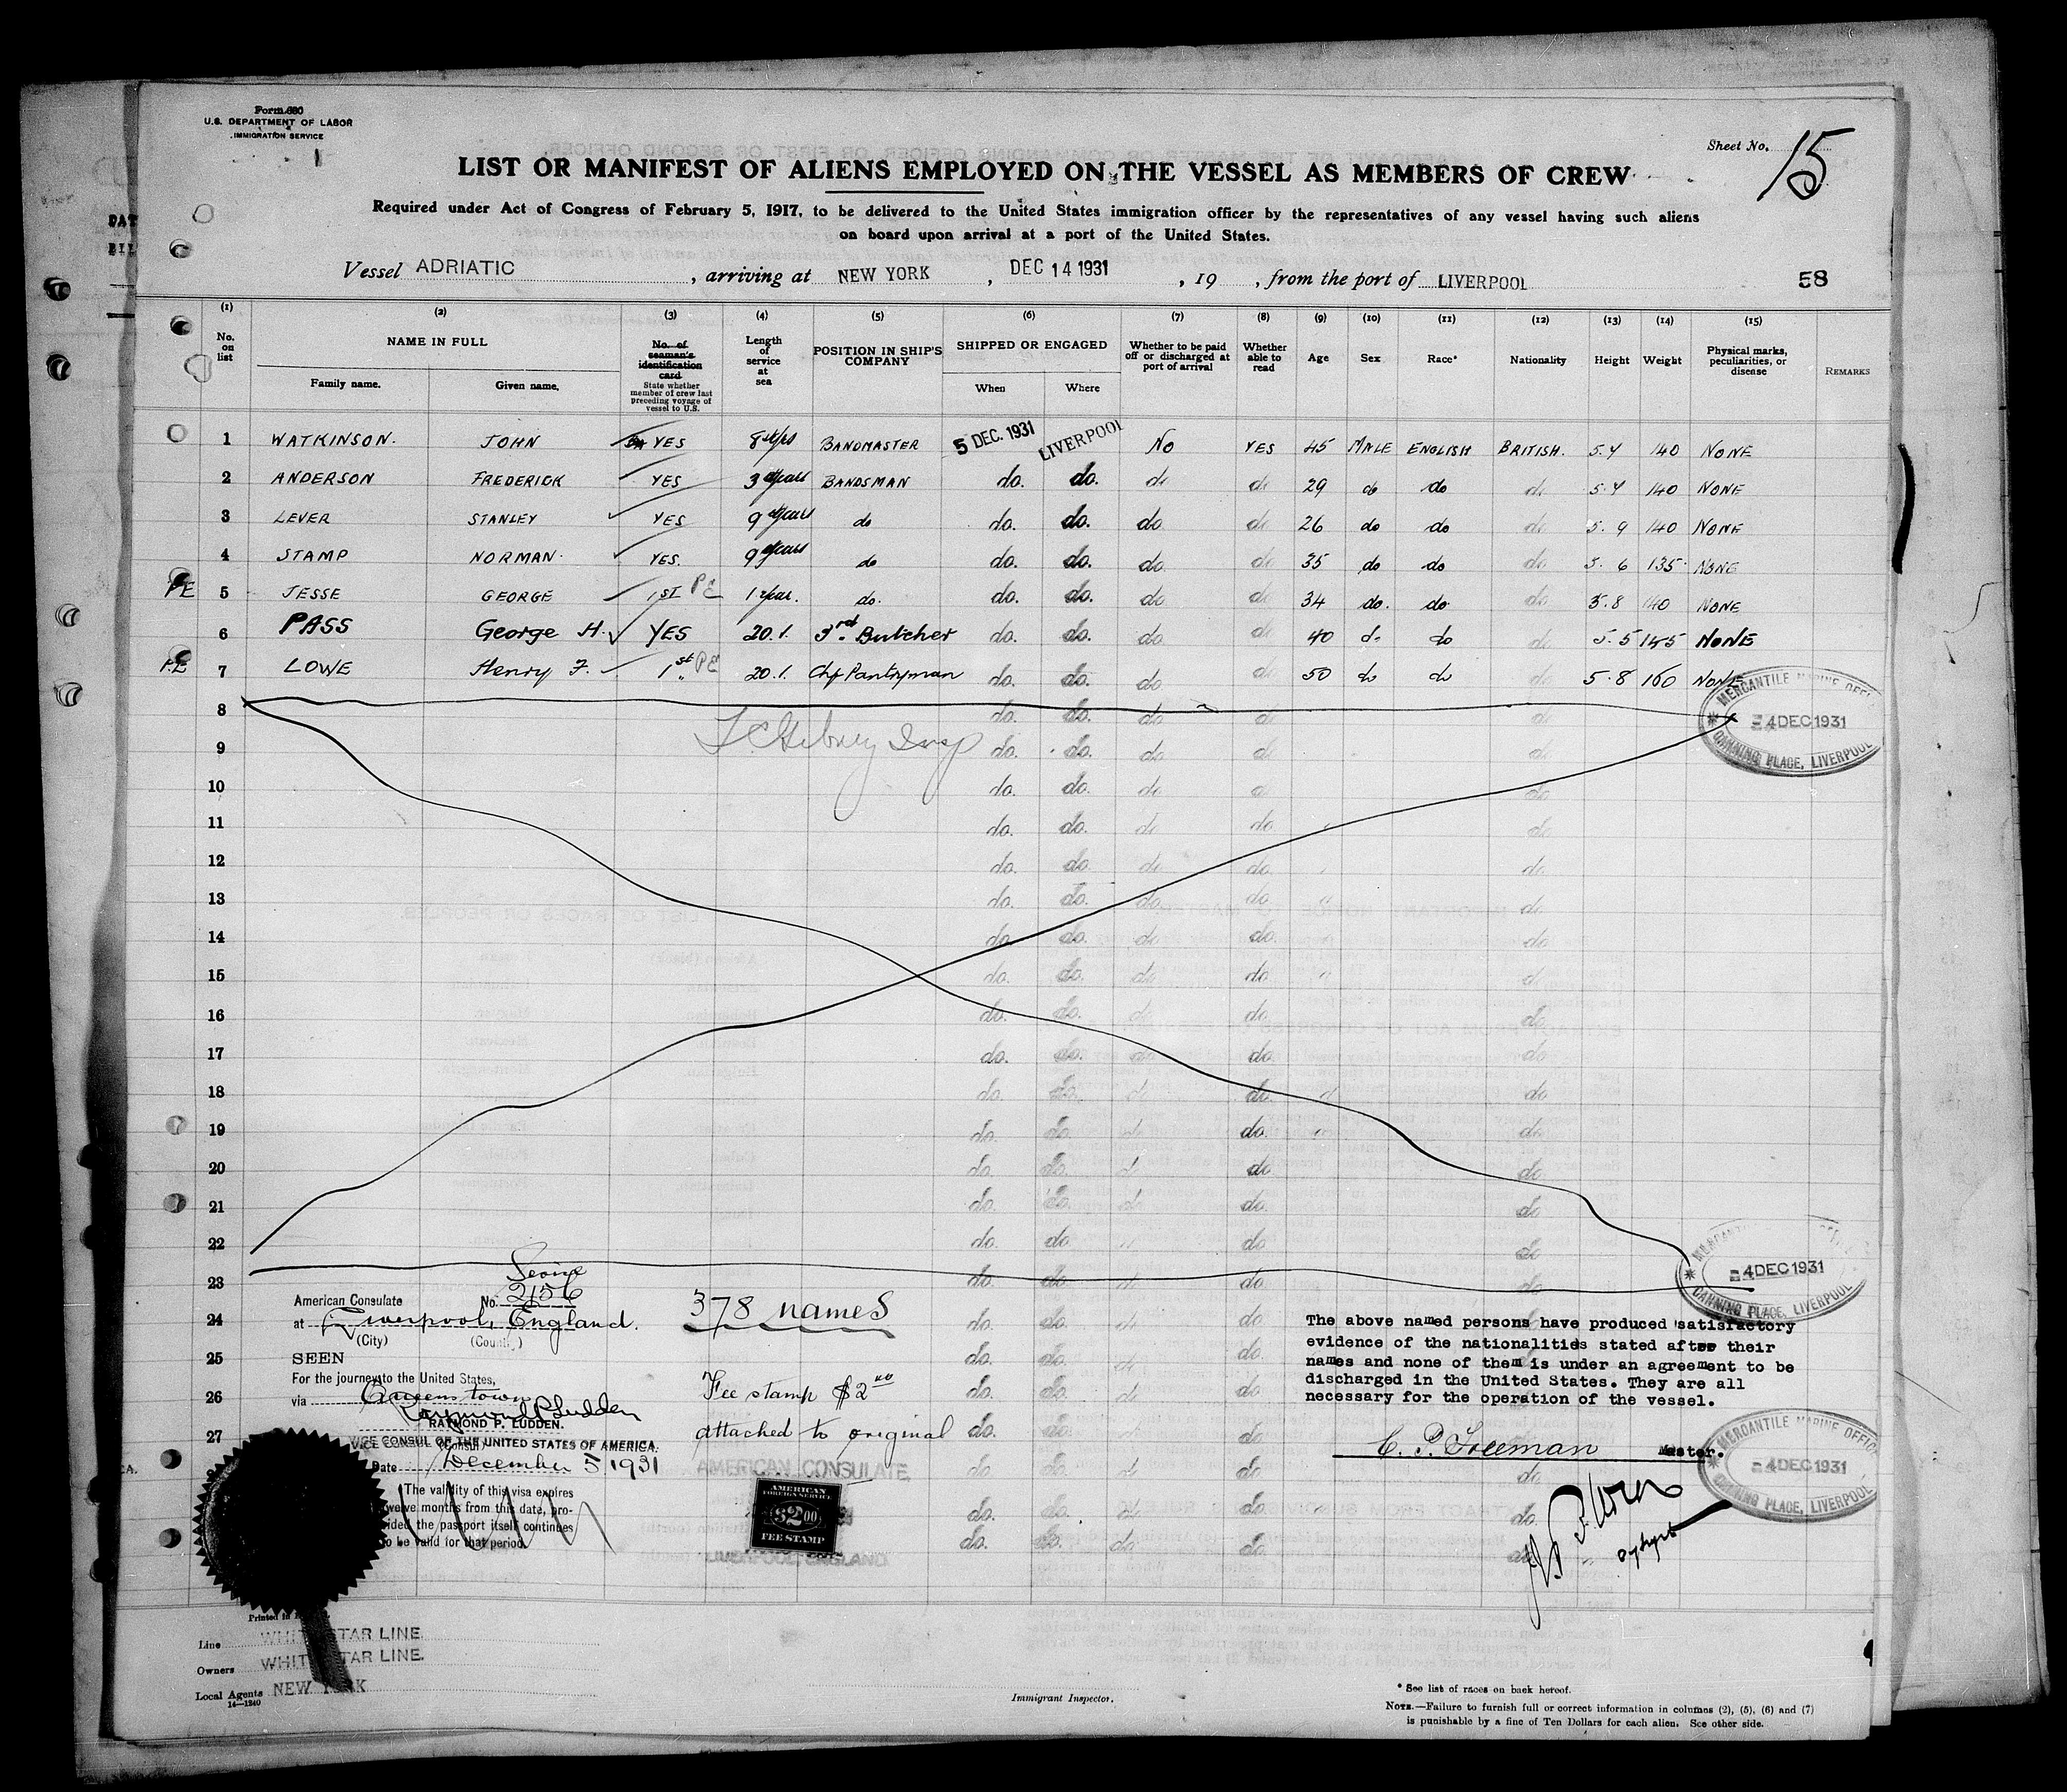 Form 680
U.S. DEPARTMENT OF LABOR
IMMIGRATION SERVICE
Sheet No. 15
LIST OR MANIFEST OF ALIENS EMPLOYED ON THE VESSEL AS MEMBERS OF CREW
Required under Act of Congress of February 5, 1917, to be delivered to the United States immigration officer by the representatives of any vessel having such aliens
on board upon arrival at a port of the United States.
Vessel ADRIATIC, arriving at NEW YORK, DEC 14 1931, 19 , from the port of LIVERPOOL 58
(1) (2) (3) (4) (5) (6) (7) (8) (9) (10) (11) (12) (13) (14) (15)
No. on list NAME IN FULL Family name. Given name. No. of seaman's identification card State whether member of crew last preceding voyage of vessel to U.S. Length of service at sea POSITION IN SHIP'S COMPANY SHIPPED OR ENGAGED When Where Whether to be paid off or discharged at port of arrival Whether able to read Age Sex Race* Nationality Height Weight Physical marks, peculiarities, or disease REMARKS
1 WATKINSON. JOHN YES 8 yrs BANDMASTER 5 DEC. 1931 LIVERPOOL NO YES 45 MALE ENGLISH BRITISH. 5.4 140 NONE
2 ANDERSON FREDERICK YES 3 years BANDSMAN do. do. do do 29 do do do 5.4 140 NONE
3 LEVER STANLEY YES 9 years do do. do. do do 26 do do do 5.9 140 NONE
4 STAMP NORMAN. YES. 9 years do do. do. do do 35 do do do 5.6 135 NONE
PE 5 JESSE GEORGE 1ST PE 1 year. do. do. do. do do 34 do. do. do 5.8 140 NONE
6 PASS George H. YES 20.1. 3rd. Butcher do. do. do do 40 do do do 5.5 145 NONE
PE 7 LOWE Henry F. 1st PE 20.1. Chf Pantryman do. do. do do 50 do do do 5.8 160 NONE
MERCANTILE MARINE OFFICE
4 DEC 1931
CANNING PLACE, LIVERPOOL
8 do. do. do do do
9 do. do. do do do
10 do. do. do do do
11 do. do. do do do
12 do. do. do do do
13 do. do. do do do
14 do. do. do do do
15 do. do. do do do
16 do. do. do do do
17 do. do. do do do
18 do. do. do do do
19 do. do. do do do
20 do. do. do do do
21 do. do. do do do
22 do. do. do do do
23 do. do. do do do
24 do. do. do do
25 do. do. do do
26 do. do. do do
27 do. do. do do
MERCANTILE MARINE OFFICE
4 DEC 1931
CANNING PLACE, LIVERPOOL
American Consulate No. 2156
at Liverpool, England.
(City) (Country)
SEEN
For the journey to the United States,
via Queenstown
Raymond P. Ludden
RAYMOND P. LUDDEN.
VICE CONSUL OF THE UNITED STATES OF AMERICA.
Date December 5 1931
The validity of this visa expires
twelve months from this date, pro-
vided the passport itself continues
to be valid for that period.
378 names
Fee stamp $2.00
attached to original
AMERICAN CONSULATE
AMERICAN
FOREIGN SERVICE
$2.00
FEE STAMP
LIVERPOOL ENGLAND
The above named persons have produced satisfactory
evidence of the nationalities stated after their
names and none of them is under an agreement to be
discharged in the United States. They are all
necessary for the operation of the vessel.
C. P. Freeman Master.
MERCANTILE MARINE OFFICE
4 DEC 1931
CANNING PLACE, LIVERPOOL
Line WHITE STAR LINE.
Owners WHITE STAR LINE.
Local Agents NEW YORK
14—1240
Immigrant Inspector.
* See list of races on back hereof.
NOTE.—Failure to furnish full or correct information in columns (2), (5), (6) and (7)
is punishable by a fine of Ten Dollars for each alien. See other side.